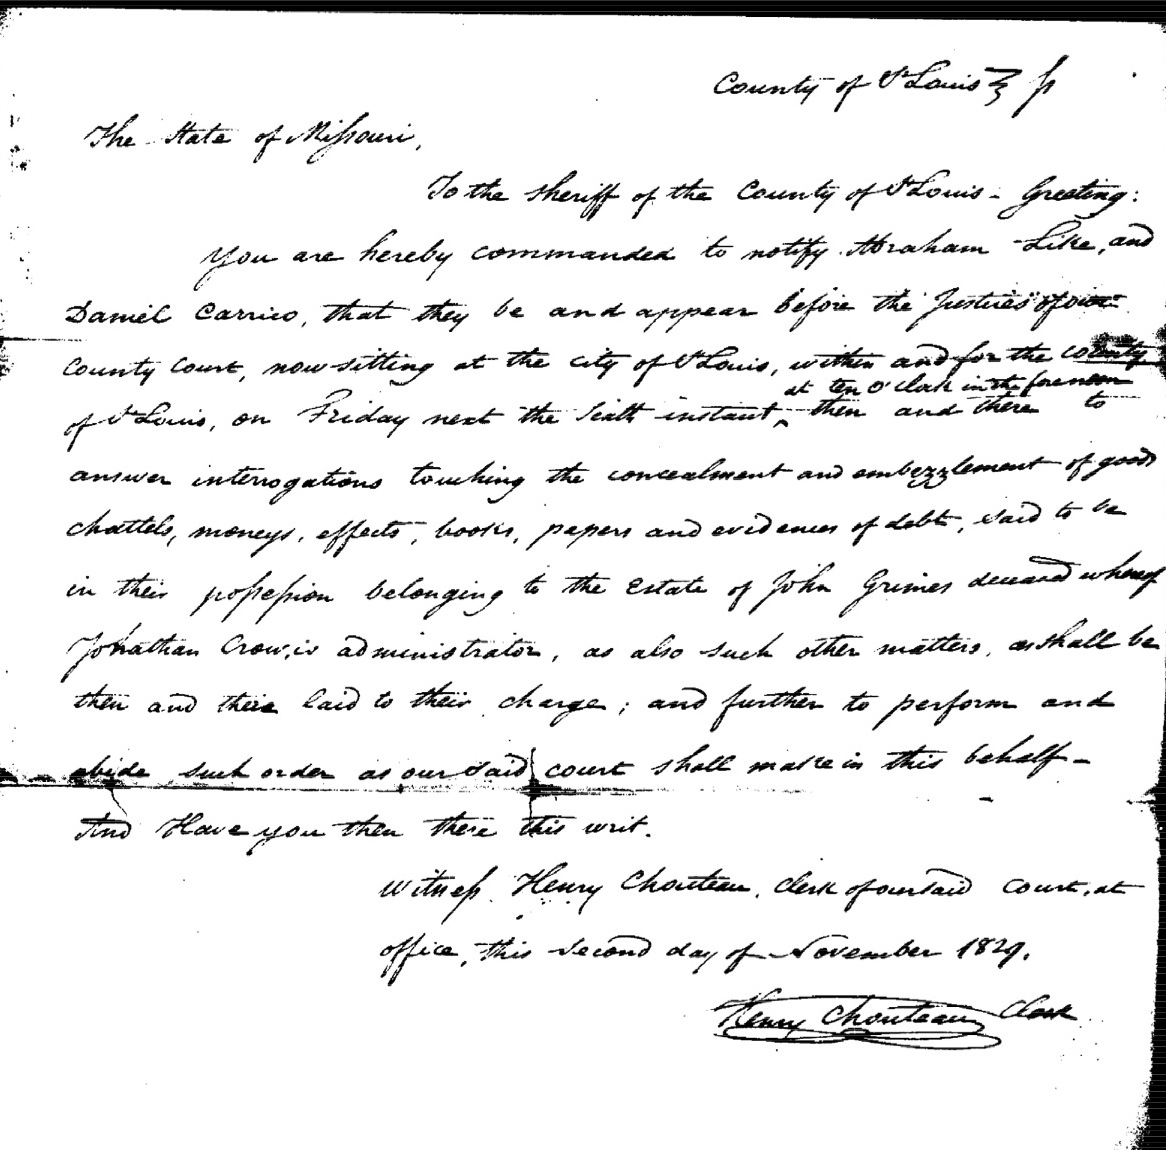 County of St Louis } ss
The State of Missouri,
To the Sheriff of the County of St Louis - Greeting:
You are hereby commanded to notify Abraham Like, and
Daniel Carrico, that they be and appear before the Justices of our
County Court, now sitting at the city of St Louis, within and for the county
at ten O'Clock in the forenoon
of St Louis, on Friday next the Sixth instant, ‸ then and there to
answer interrogations touching the concealment and embezzlement of goods
chattels, moneys, effects, books, papers and evidences of debt, said to be
in their possession belonging to the Estate of John Grimes deceased whereof
Jonathan Crow, is administrator, as also such other matters, as shall be
then and there laid to their charge; and further to perform and
abide such order as our said court shall make in this behalf -
And Have you then there this writ.
Witness Henry Chouteau, Clerk of our said Court, at
office, this Second day of November 1829.
Henry Chouteau Clerk